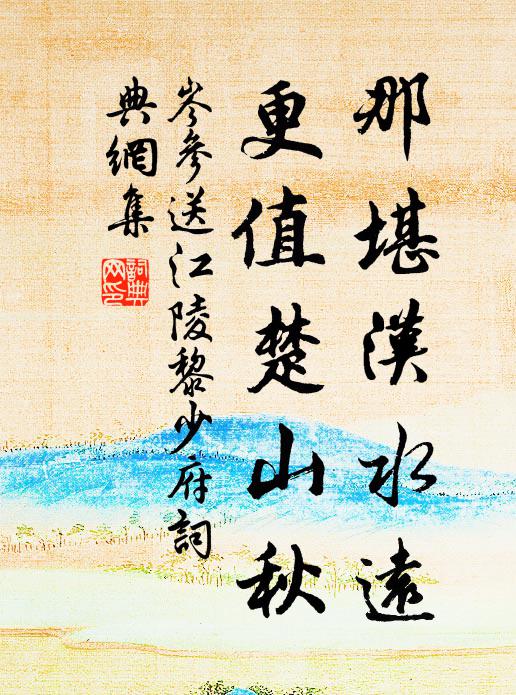 那堪漢水遠
更值楚山秋
岑參送江陵黎少府詞
典網集
詞典
网印